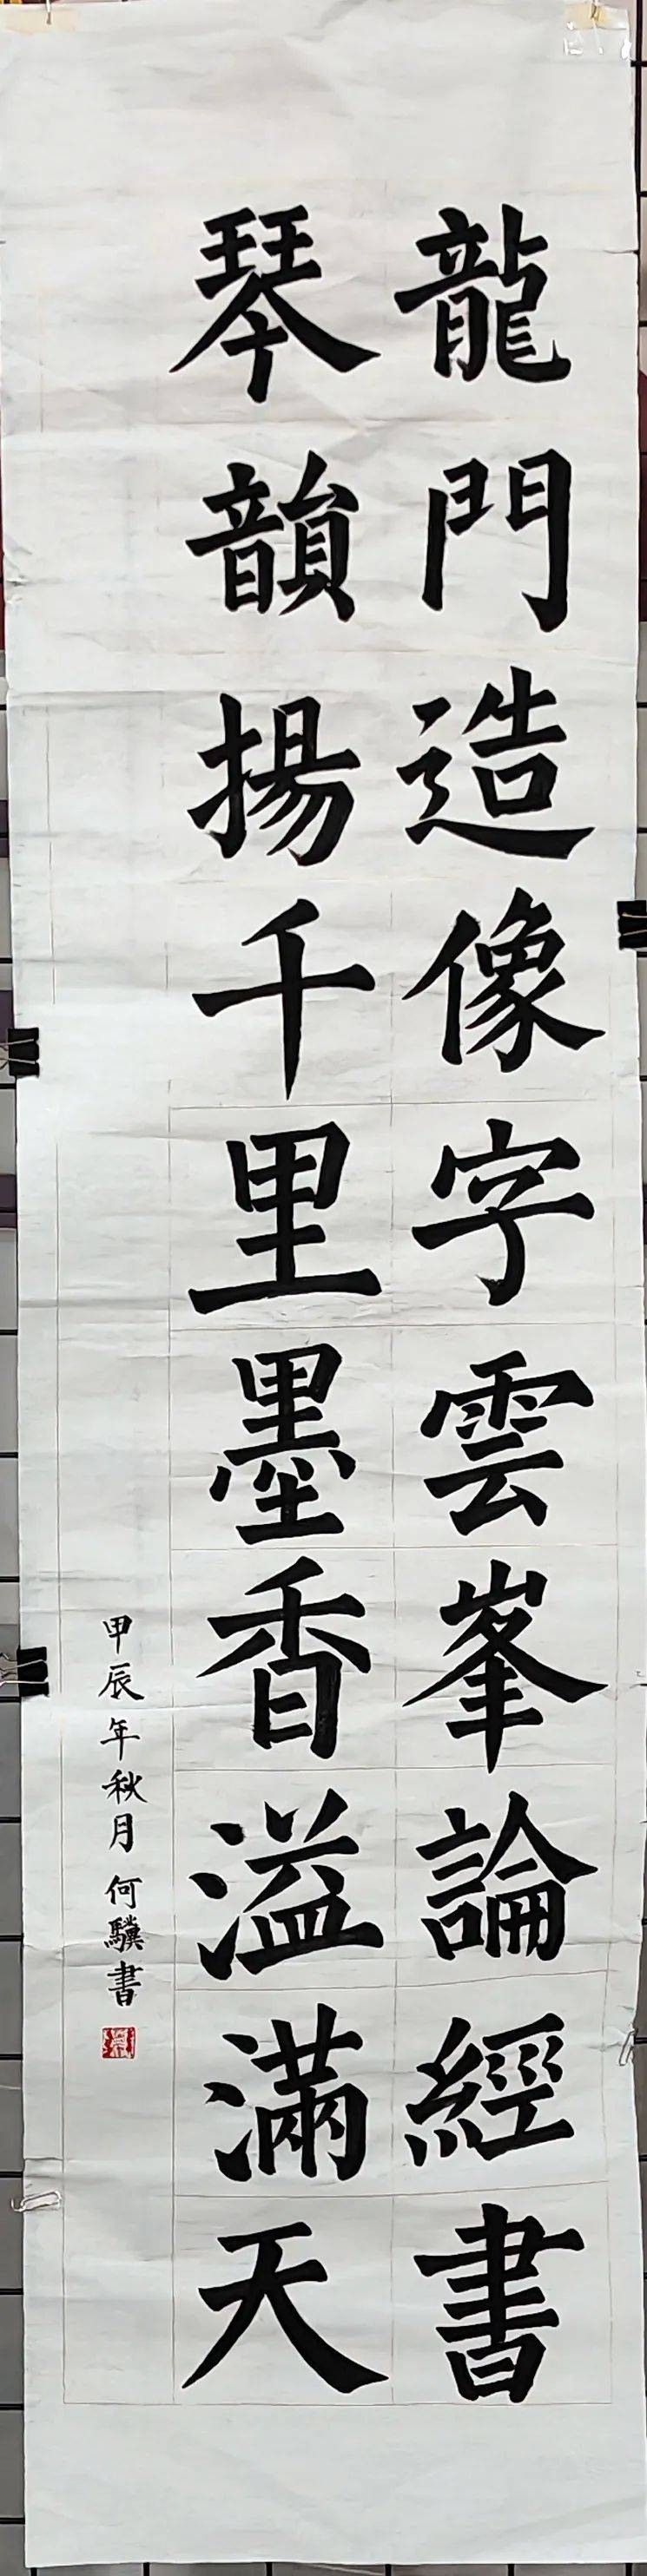 龍門造像字雲峯論經書
琴韻揚千里墨香溢滿天
甲辰年秋月何驥書